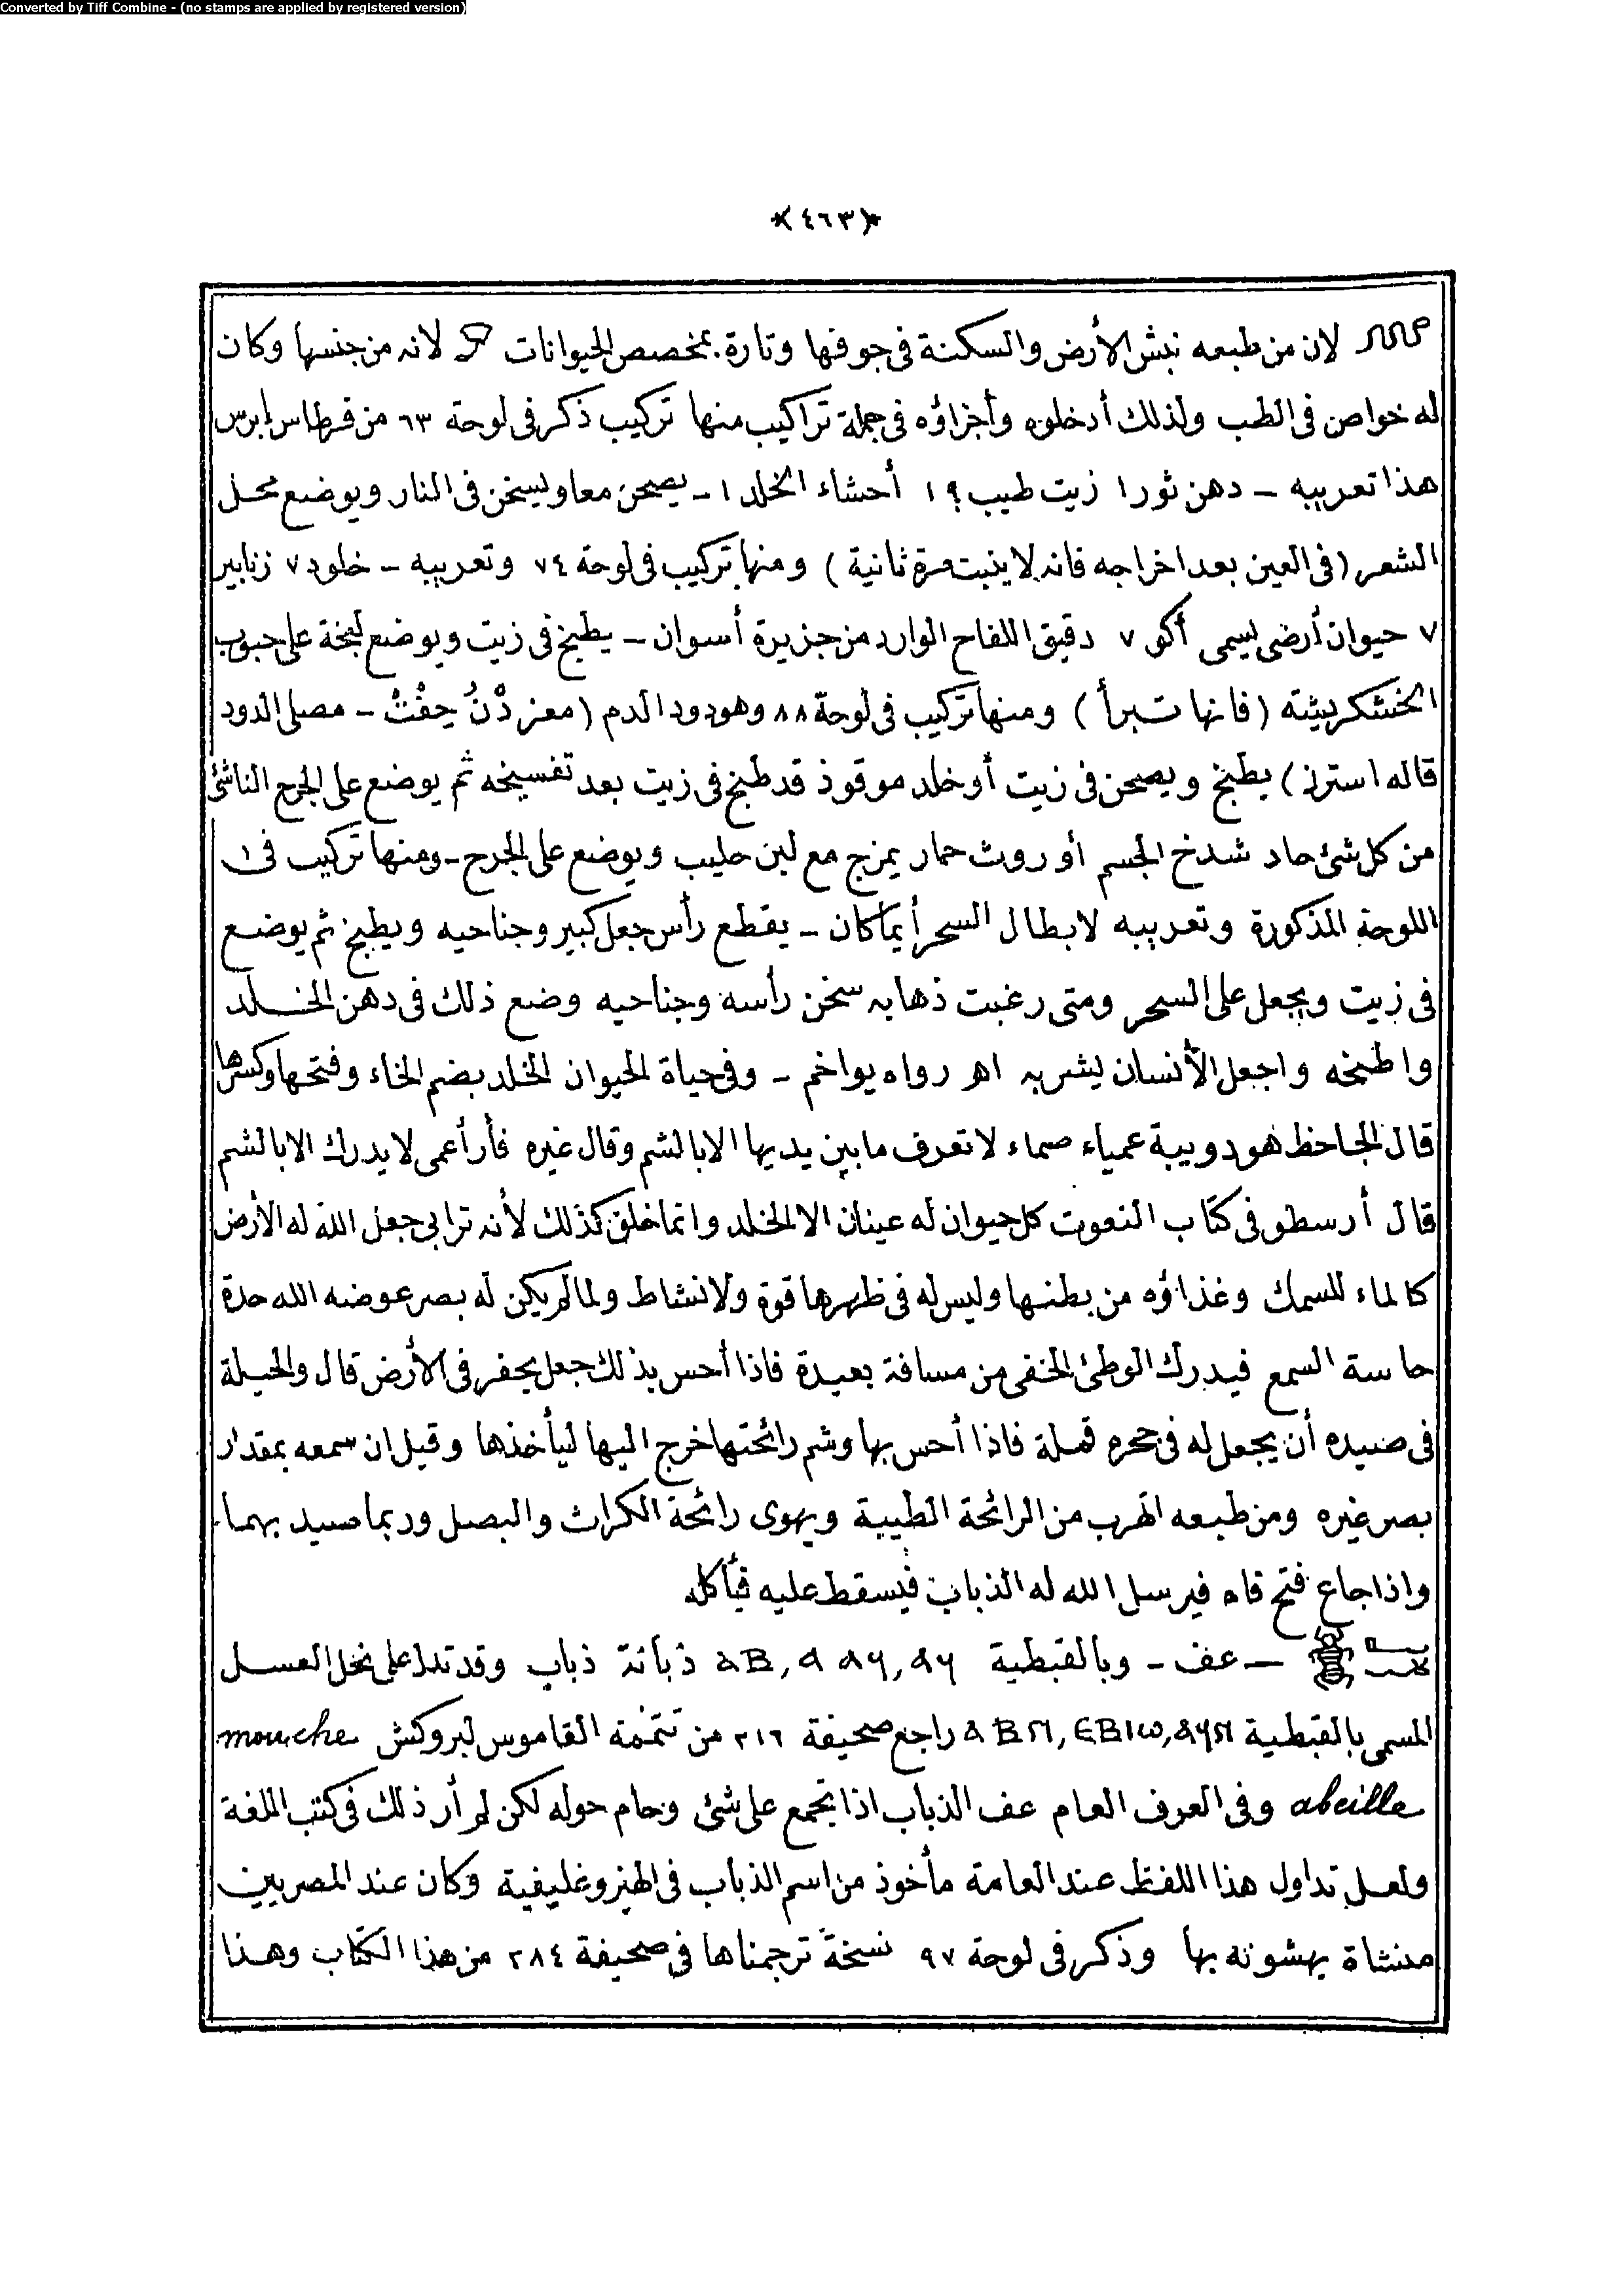 Converted by Tiff Combine - (no stamps are applied by registered version)
﴿٤٦٣﴾
لان من طبعه نبش الأرض والسكنة فى جوفها وتارة بمخصص الحيوانات لانه من جنسها وكان
له خواص فى الطب ولذلك أدخلوه وأجزاؤه فى جملة تراكيب منها تركيب ذكر فى لوحة ٦٣ من قرطاس إبرس
هذا تعريبه - دهن ثور ١ زيت طيب ؟ ١ أحشاء الخلد ١ - يصحن معا ويسخن فى النار ويوضع محل
الشعر (فى العين بعد اخراجه فانه لا ينبت مرة ثانية) ومنها تركيب فى لوحة ٧٤ وتعريبه - خلود ٧ زنابير
٧ حيوان أرضى يسمى أكو ٧ دقيق اللفاح الوارد من جزيرة أسوان - يطبخ فى زيت ويوضع لبخة على حبوب
الخشكريشة (فانها تبرأ) ومنها تركيب فى لوحة ٨٨ وهو دود الدم (معز دْنُ حِفْتْ - مصلى الدود
قاله استرز) يطبخ ويصحن فى زيت أو خلد موقوذ قد طبخ فى زيت بعد تفسيخه ثم يوضع على الجرح الناشئ
من كل شئ حاد شدخ الجسم أو روث حمار يمزج مع لبن حليب ويوضع على الجرح - ومنها تركيب فى
اللوحة المذكورة وتعريبه لابطال السحر أيما كان - يقطع رأس جعل كبير وجناحيه ويطبخ ثم يوضع
فى زيت ويجعل على السحر ومتى رغبت ذهابه سخن رأسه وجناحيه وضع ذلك فى دهن الخلد
واطبخه واجعل الأنسان يشربه اهـ رواه يواخم - وفى حياة الحيوان الخلد بضم الخاء وفتحها وكسرها
قال الجاحظ هو دويبة عمياء صماء لا تعرف ما بين يديها الا بالشم وقال غيره فأر أعمى لا يدرك الا بالشم
قال أرسطو فى كتاب النعوت كل حيوان له عينان الا الخلد وانما خلق كذلك لأنه ترابى جعل الله له الأرض
كالماء للسمك وغذاؤه من بطنها وليس له فى ظهرها قوة ولا نشاط ولما لم يكن له بصر عوضه الله حدة
حاسة السمع فيدرك الوطئ الخفى من مسافة بعيدة فاذا أحس بذلك جعل يحفر فى الأرض قال والحيلة
فى صيده أن يجعل له فى جحره قملة فاذا أحس بها وشم رائحتها خرج اليها ليأخذها وقيل ان سمعه بمقدار
بصر غيره ومن طبعه الهرب من الرائحة الطيبة ويهوى رائحة الكراث والبصل وربما صيد بهما
واذا جاع فتح فاه فيرسل الله له الذباب فيسقط عليه فيأكله
- عف - وبالقبطية ذبانة ذباب وقد تدل على نحل العسل
المسمى بالقبطية راجع صحيفة ٢١٦ من تتمة القاموس لبروكش mouche
abeille وفى العرف العام عف الذباب اذا تجمع على شئ وحام حوله لكن لم أر ذلك فى كتب اللغة
ولعل تداول هذا اللفظ عند العامة مأخوذ من اسم الذباب فى الهيروغليفية وكان عند المصريين
منشاة يهشونه بها وذكر فى لوحة ٩٧ نسخة ترجمناها فى صحيفة ٢٨٤ من هذا الكتاب وهذا